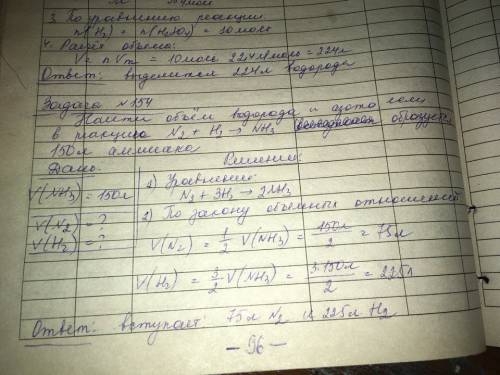 3. По уравнению реакции
n(H2) = n(H2SO4) = 10моль
4. Расчёт объёма:
V = n Vm = 10моль · 22,4л/моль = 224л
Ответ: выделится 224л водорода
Задача №154
Найти объём водорода и азота если
в реакцию N2 + H2 → NH3 образуется
150л аммиака
Дано: Решение:
V(NH3) = 150л 1) Уравнение:
N2 + 3H2 → 2NH3
V(N2) = ? 2) По закону объёмных отношений
V(H2) = ? V(N2) = 1/2 V(NH3) = 150л/2 = 75л
V(H2) = 3/2 V(NH3) = 3·150л/2 = 225л
Ответ: вступает: 75л N2 и 225л H2
- 96 -